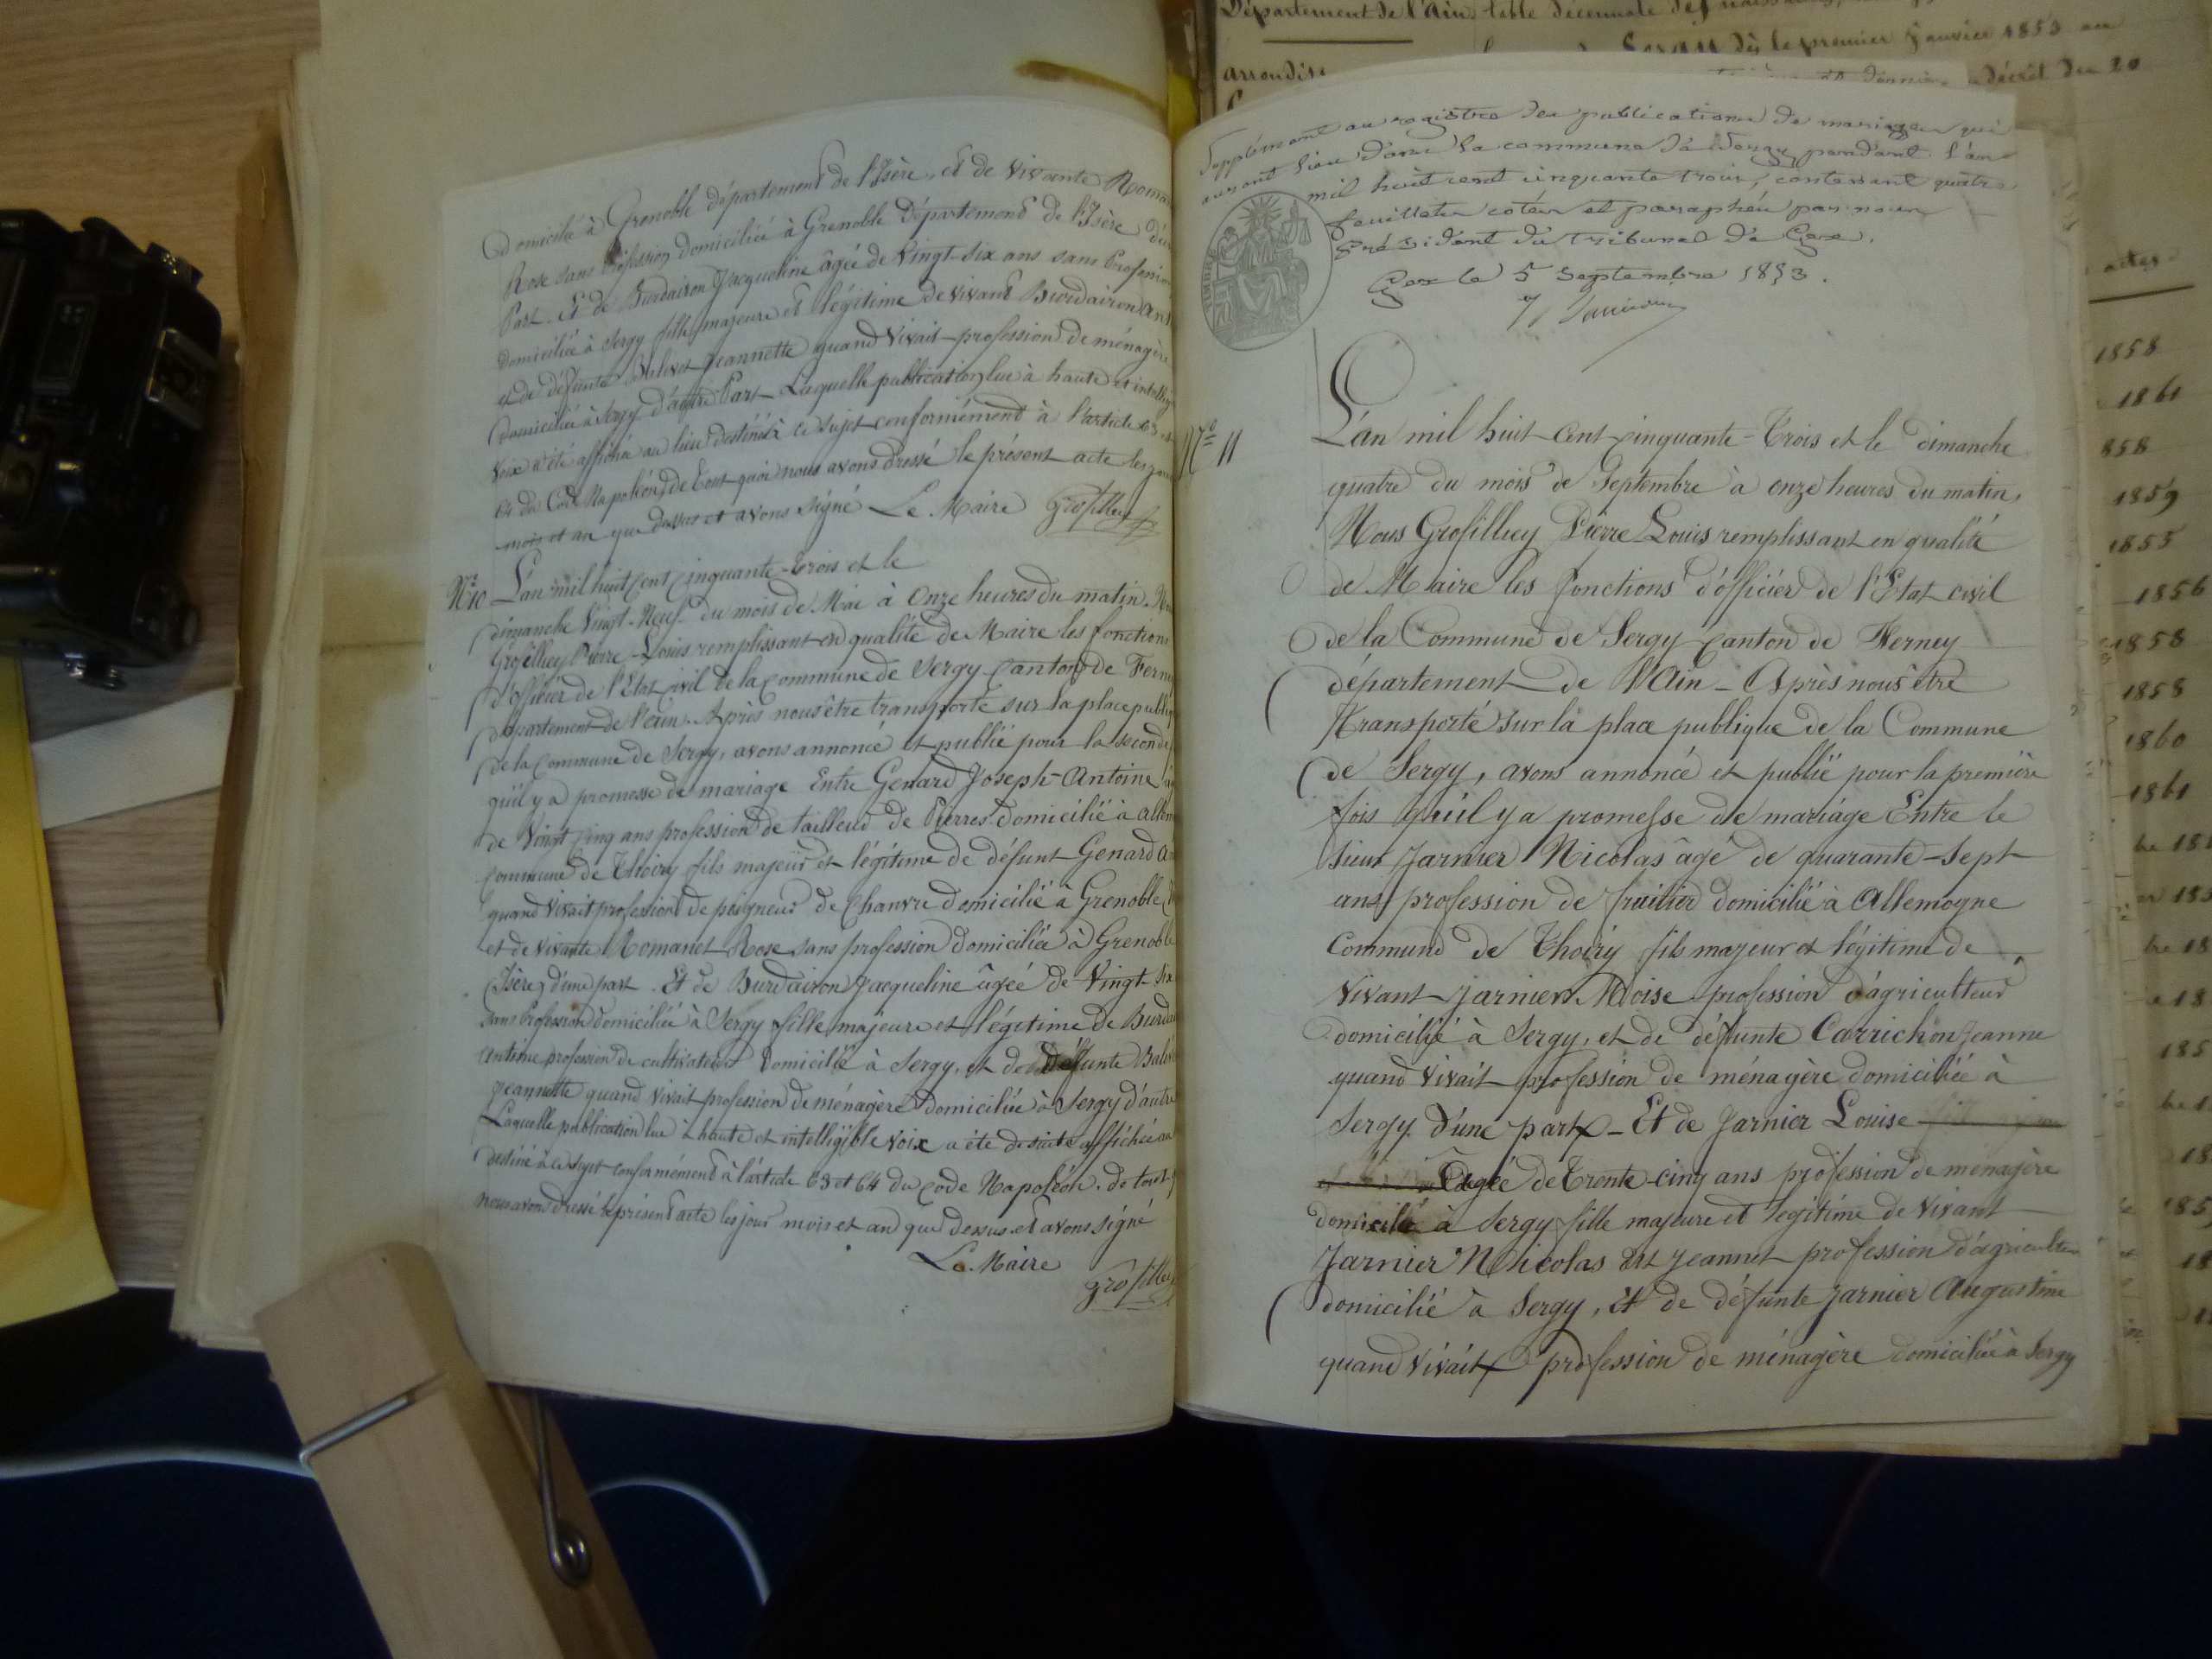 Domicilié à Grenoble département de l'Isère, et de vivante Roman
Rose sans Profession domiciliée à Grenoble Département de l'Isère d'une
Part. Et de Burdairon Jacqueline âgée de Vingt-Six ans sans Profession
domiciliée à Sergy fille majeure et légitime de vivant Burdairon Ant
et de défunte Jeannette quand Vivait profession de ménagère
domiciliée à Sergy d'autre Part. Laquelle publication lue à haute et intellig
Voix a été affichée au lieu destiné à ce sujet conformément à l'article 63 et
64 du Code Napoléon, de tout quoi nous avons dressé le présent acte les jour
mois et an que dessus et avons signé Le Maire Grosfilley
N° 10 L'an mil huit cent cinquante-trois et le
dimanche Vingt-Neuf du mois de Mai à Onze heures du matin. Nous
Grosfilley Pierre-Louis remplissant en qualité de Maire les fonctions
d'officier de l'Etat civil de la commune de Sergy canton de Ferney
département de l'ain. Après nous être transporté sur la place publiq
de la Commune de Sergy, avons annoncé et publié pour la seconde
qu'il y a promesse de mariage Entre Genard Joseph-Antoine
de Vingt cinq ans profession de tailleur de Pierres domicilié à Allem
Commune de Thoiry fils majeur et légitime de défunt Genard A
quand vivait profession de peigneur de Chanvre domicilié à Grenoble
et de vivante Romanet Rose sans profession domiciliée à Grenoble
(Isère) d'une part. Et de Burdairon Jacqueline âgée de Vingt-Six
sans Profession domiciliée à Sergy fille majeure et légitime de Burdai
Antoine profession de cultivateur domicilié à Sergy, et de défunte Baliv
Jeannette quand vivait profession de ménagère domiciliée à Sergy d'autre
Laquelle publication lue à haute et intelligible voix a été de suite affichée au
destiné à ce sujet conformément à l'article 63 et 64 du Code Napoléon. de tout q
nous avons dressé le présent acte les jour mois et an que dessus et avons signé
Le Maire
Grosfilley
Département de l'Ain, table décennale des naissances
Sergy dès le premier Janvier 1853 au
arrondis
décrêt du 20
Supplément au registre des publications de mariages qui
auront lieu dans la commune de Sergy pendant l'an
mil huit cent cinquante trois, contenant quatre
feuillets cotés et paraphés par nous
Président du Tribunal de Gex.
Gex le 5 Septembre 1853.
TIMBRE
N° 11
L'an mil huit-Cent-cinquante-Trois et le dimanche
quatre du mois de Septembre à onze heures du matin,
Nous Grosfilley Pierre-Louis remplissant en qualité
de Maire les fonctions d'officier de l'Etat civil
de la Commune de Sergy canton de Ferney
département de l'Ain - Après nous être
Transporté sur la place publique de la Commune
de Sergy, avons annoncé et publié pour la première
fois qu'il y a promesse de mariage Entre le
Sieur Jarnier Nicolas âgé de quarante-Sept
ans profession de fruitier domicilié à Allemogne
Commune de Thoiry fils majeur et légitime de
Vivant Jarnier Moise profession d'agriculteur
domicilié à Sergy, et de défunte Carrichon Jeanne
quand Vivait profession de ménagère domiciliée à
Sergy. D'une part - Et de Jarnier Louise
âgée de Trente-cinq ans profession de ménagère
domiciliée à Sergy fille majeure et légitime de Vivant
Jarnier Nicolas dit Jeannet profession d'agriculteur
domicilié à Sergy, Et de défunte Jarnier Augustine
quand Vivait profession de ménagère domiciliée à Sergy
actes
1858
1861
858
1859
1855
1856
1858
1858
1860
1861